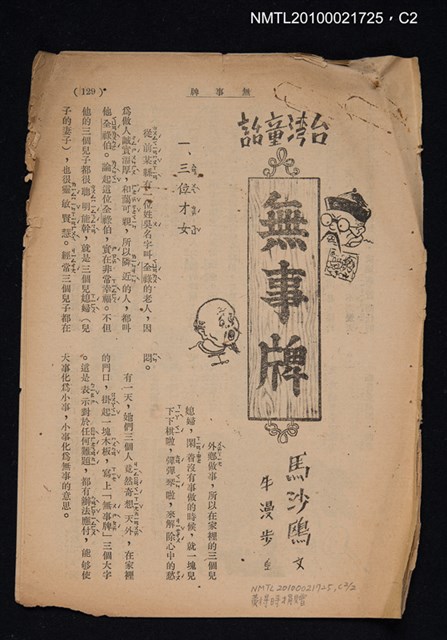 NMTL20100021725，C2
(129)
無事牌
台灣童話
無事牌
馬沙鷗 文
牛漫步 画
一、三位才女
從前某縣有一位姓吳名字叫全祿的老人，因
為做人誠實溫厚，和藹可親，所以隣近的人，都叫
他全祿伯。論起這位全祿伯，實在非常幸福。不但
他的三個兒子都很聰明能幹，就是三個媳婦（兒
子的妻子），也很靈敏賢慧。經常三個兒子都在
外鄉做事，所以在家裡的三個兒
媳婦，閑着沒有事做的時候，就一塊兒
下下棋啦，彈彈琴啦，來解除心中的愁
悶。
有一天，她們三個人竟然奇想天外，在家裡
的門口，掛起一塊木板，寫上「無事牌」三個大字
。這是表示對於任何難題，都有辦法應付，能够使
大事化為小事，小事化為無事的意思。
NMTL20100021725, C2/2